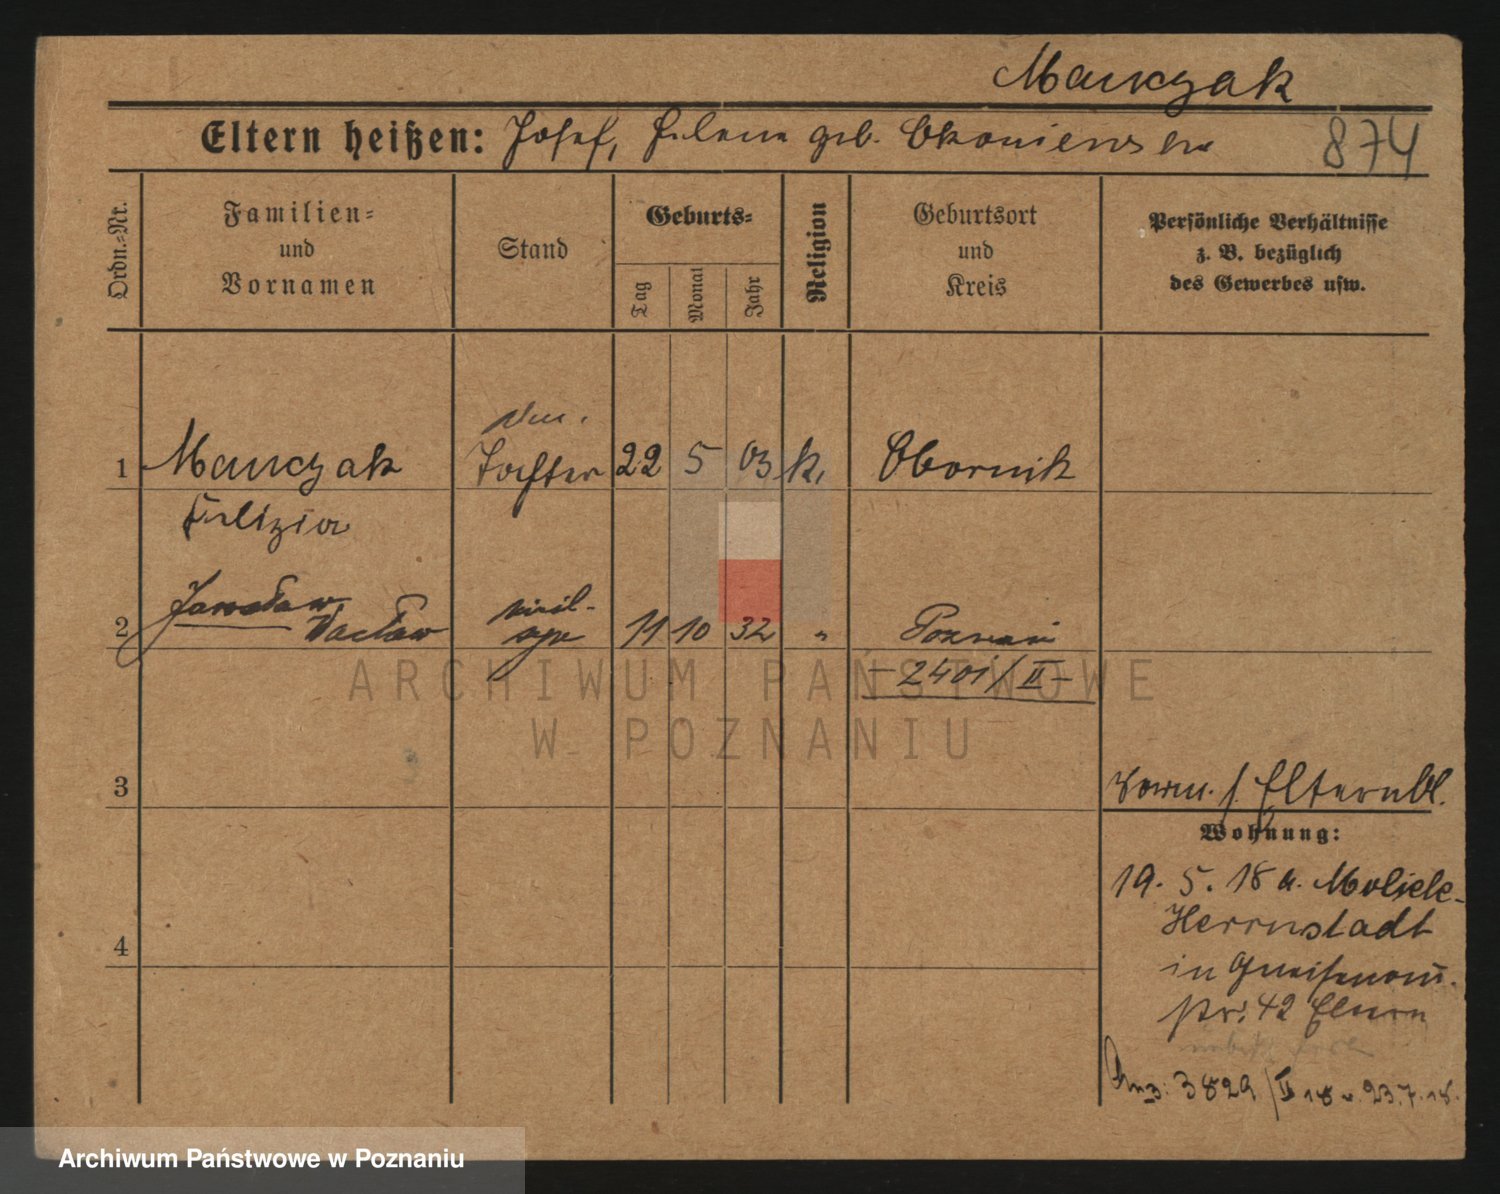 Mańczak
Eltern heißen: Josef, Helene geb. Okoniewska
874
Ordn.-Nr.
Familien-
und
Vornamen
Stand
Geburts-
Tag
Monat
Jahr
Religion
Geburtsort
und
Kreis
Persönliche Verhältnisse
z. B. bezüglich
des Gewerbes usw.
1 Mańczak Tochter 22 5 03 k. Obornik
Felizia
2 Jarosław Wacław 11 10 32 " Poznań
- 2401/II -
ARCHIWUM PAŃSTWOWE
W POZNANIU
3
Elternbl.
Wohnung:
4
19. 5. 18 a.
Herrnstadt
in Gneisenau-
str. 42 Eltern
3829/II 18 v. 23.7.18.
Archiwum Państwowe w Poznaniu